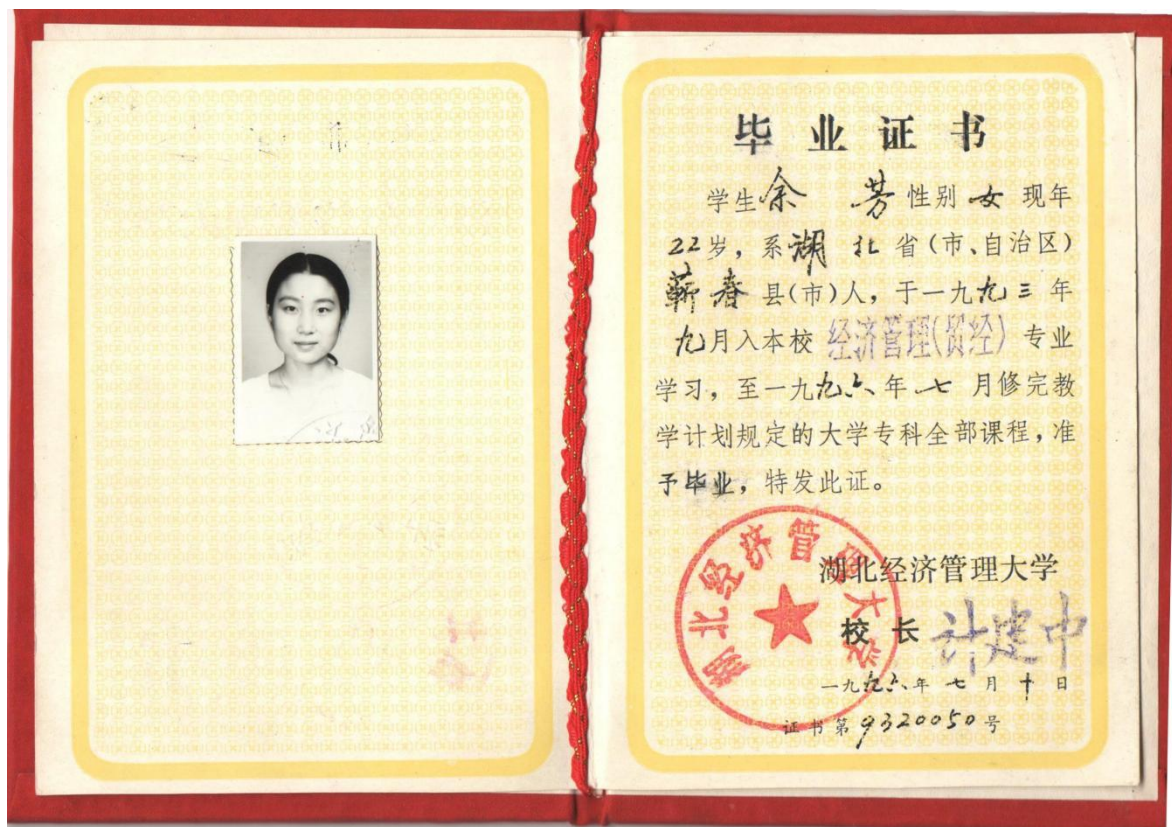 毕业证书
学生余 芳性别女现年
22岁，系湖北省(市、自治区)
蕲春县(市)人，于一九九三年
九月入本校 经济管理(贸经) 专业
学习，至一九九六年七月修完教
学计划规定的大学专科全部课程，准
予毕业，特发此证。
湖北经济管理大学
湖北经济管理大学
校长 计建中
一九九六年七月十日
证书第9320050号